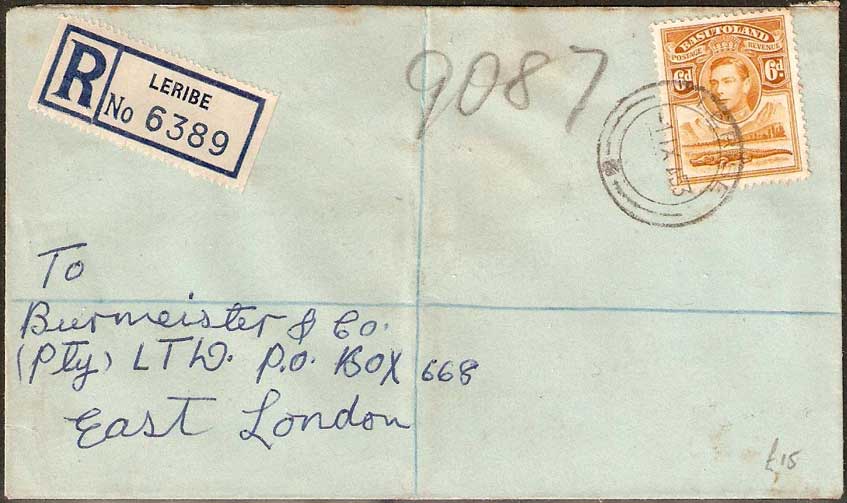 R
LERIBE
No 6389
9087
BASUTOLAND
POSTAGE REVENUE
6d 6d
To
Burmeister & Co.
(Pty) LTD. P.O. BOX 668
East London
£15